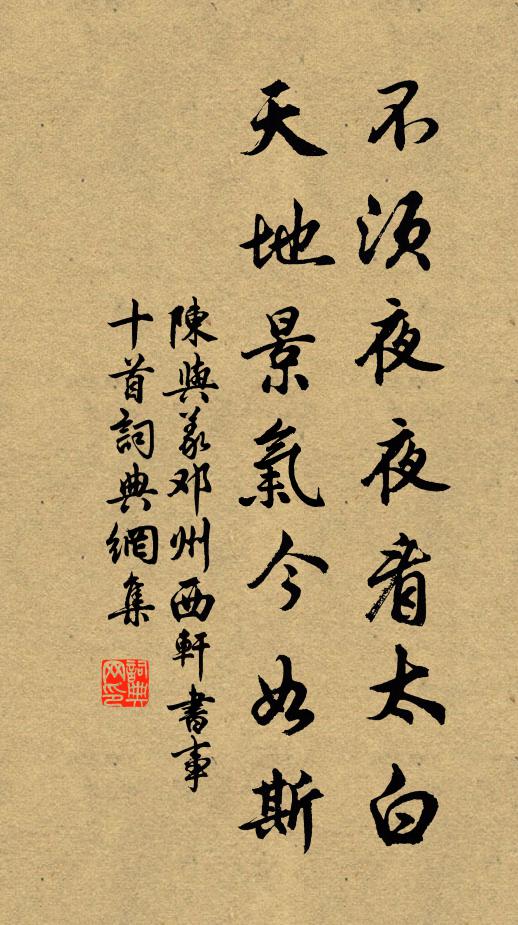 不須夜夜看太白
天地景氣今如斯
陳與義邓州西軒書事
十首詞典網集
詞典
网印